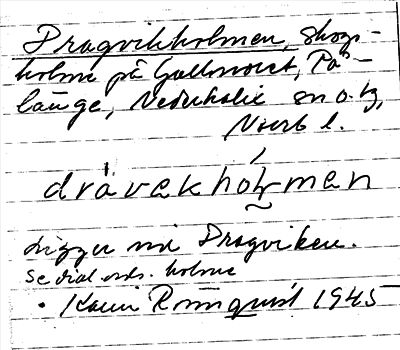 Dragvikholmen, skogs-
holme på Gallnoret, På-
länge, Nederkalix sn o. tg,
Norrb l.
dràvekhoḷmen
Ligger vid Dragviken.
se dial. ords. holme
• Karin Rönnquist 1945